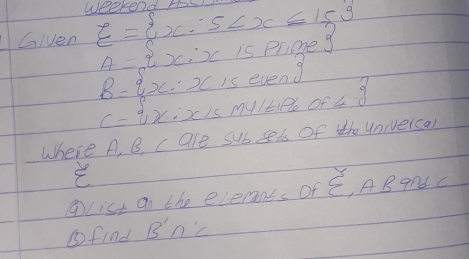 Weekend
Given ξ = {x : 5 < x ≤ 15}
A = {x : x is prime}
B = {x : x is even}
C = {x : x is multiple of 4}
Where A, B, C are sub sets of the universal
ξ
a) List all the elements of ξ, A B and C
b) find B' ∩ C